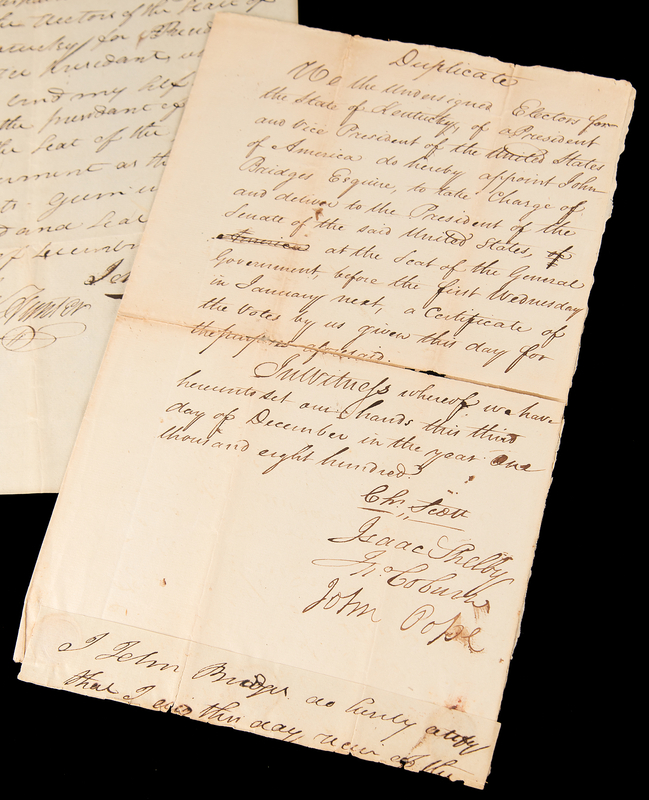 the Electors of the State of
for
President,
and my self
the president of
the Seat of the
as th
and Seal
of December
Duplicate
We the undersigned Electors for
the State of Kentucky, of a President
and vice President of the United States
of America do hereby appoint John
Bridges Esquire, to take Charge of
and deliver to the President of the
Senate of the said United States, of
America at the Seat of the General
Government, before the first Wednesday
in January next, a Certificate of
the votes by us given this day for
the purpose aforesaid.
In Witness whereof we have
hereunto set our hands this third
day of December in the year one
thousand eight hundred.
Chs. Scott
Isaac Shelby
Jn. Coburn
John Pope
I John Bridges do
that I this day